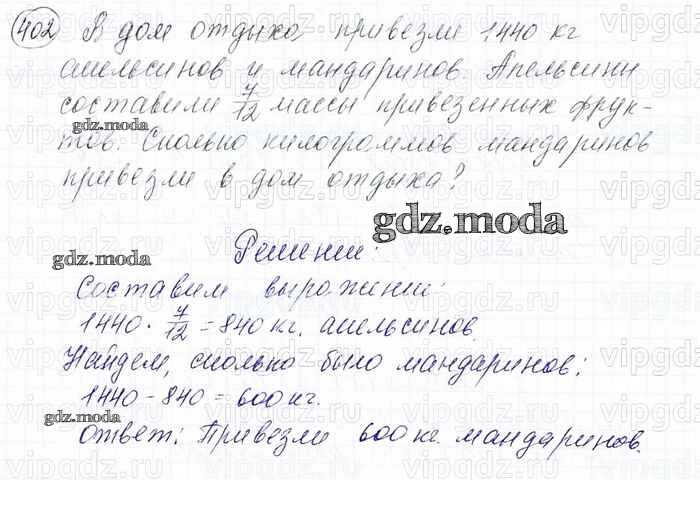 402 В дом отдыха привезли 1440 кг
апельсинов и мандаринов. Апельсины
составили 7/12 массы привезенных фрук-
тов. Сколько килограммов мандаринов
привезли в дом отдыха?
Решение:
Составим выражение:
1440 · 7/12 = 840 кг. апельсинов.
Найдем, сколько было мандаринов:
1440 - 840 = 600 кг.
Ответ: Привезли 600 кг. мандаринов.
gdz.moda
gdz.moda
gdz.moda
gdz.moda
vipgdz.ru